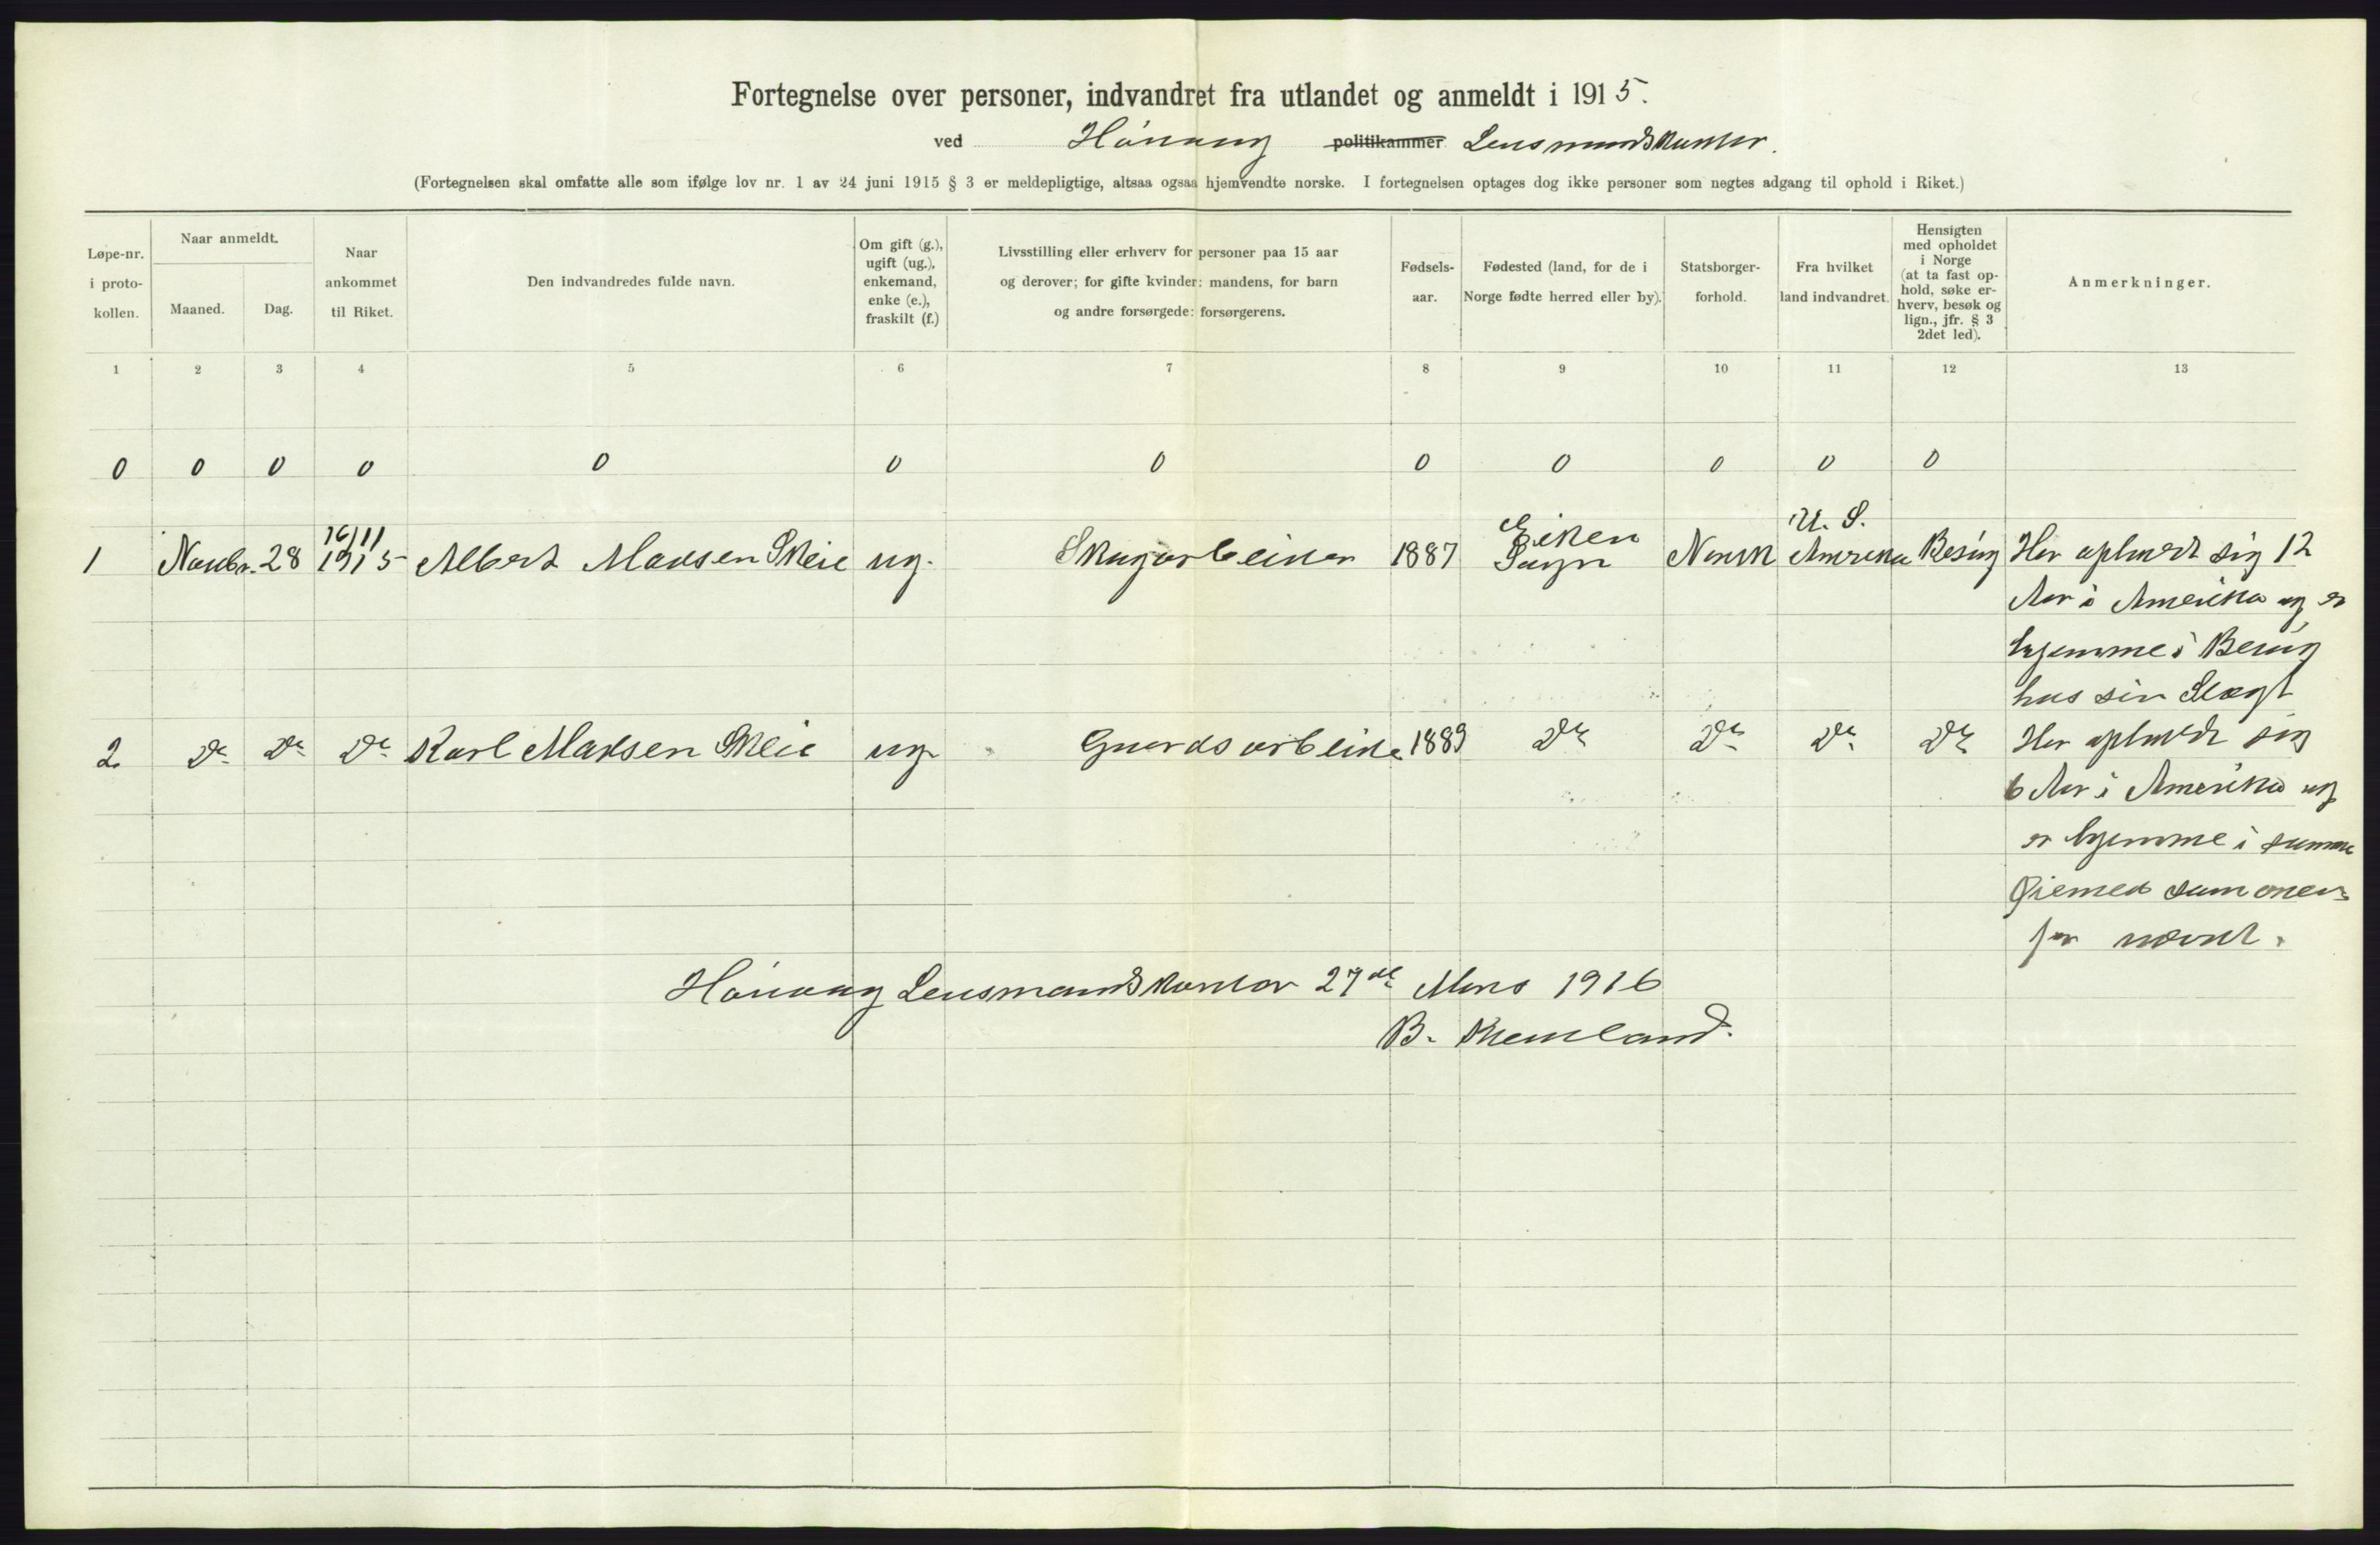 Fortegnelse over personer, indvandret fra utlandet og anmeldt i 1915.
ved politikammer Lensmandskontor.
(Fortegnelsen skal omfatte alle som ifølge lov nr. 1 av 24 juni 1915 § 3 er meldepligtige, altsaa ogsaa hjemvendte norske. I fortegnelsen optages dog ikke personer som negtes adgang til ophold i Riket.)
Løpe-nr. i proto-kollen.
Naar anmeldt.
Maaned.
Dag.
Naar ankommet til Riket.
Den indvandredes fulde navn.
Om gift (g.), ugift (ug.), enkemand, enke (e.), fraskilt (f.)
Livsstilling eller erhverv for personer paa 15 aar og derover; for gifte kvinder: mandens, for barn og andre forsørgede: forsørgerens.
Fødsels-aar.
Fødested (land, for de i Norge fødte herred eller by).
Statsborger-forhold.
Fra hvilket land indvandret.
Hensigten med opholdet i Norge (at ta fast op-hold, søke er-hverv, besøk og lign., jfr. § 3 2det led).
Anmerkninger.
1 2 3 4 5 6 7 8 9 10 11 12 13
0 0 0 0 0 0 0 0 0 0 0 0
16/11 Eiken U. S.
1 Novbr. 28 1915 Albert Madsen Skeie ug. Skogarbeider 1887 Sogn Norsk Amerika Besøg Har opholdt sig 12
Aar i Amerika og er
hjemme i Besøg
hos sin Slægt
2 Do Do Do Karl Madsen Skeie ug Gaardsarbeider 1889 Do Do Do Do Har opholdt sig
6 Aar i Amerika og
er hjemme i samme
Øiemed som oven-
for nævnt.
Lensmandskontor 27de Mars 1916
B.